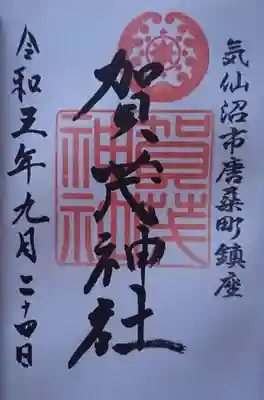 気仙沼市唐桑町鎮座
賀茂神社
賀茂
神社
令和三年九月二十四日